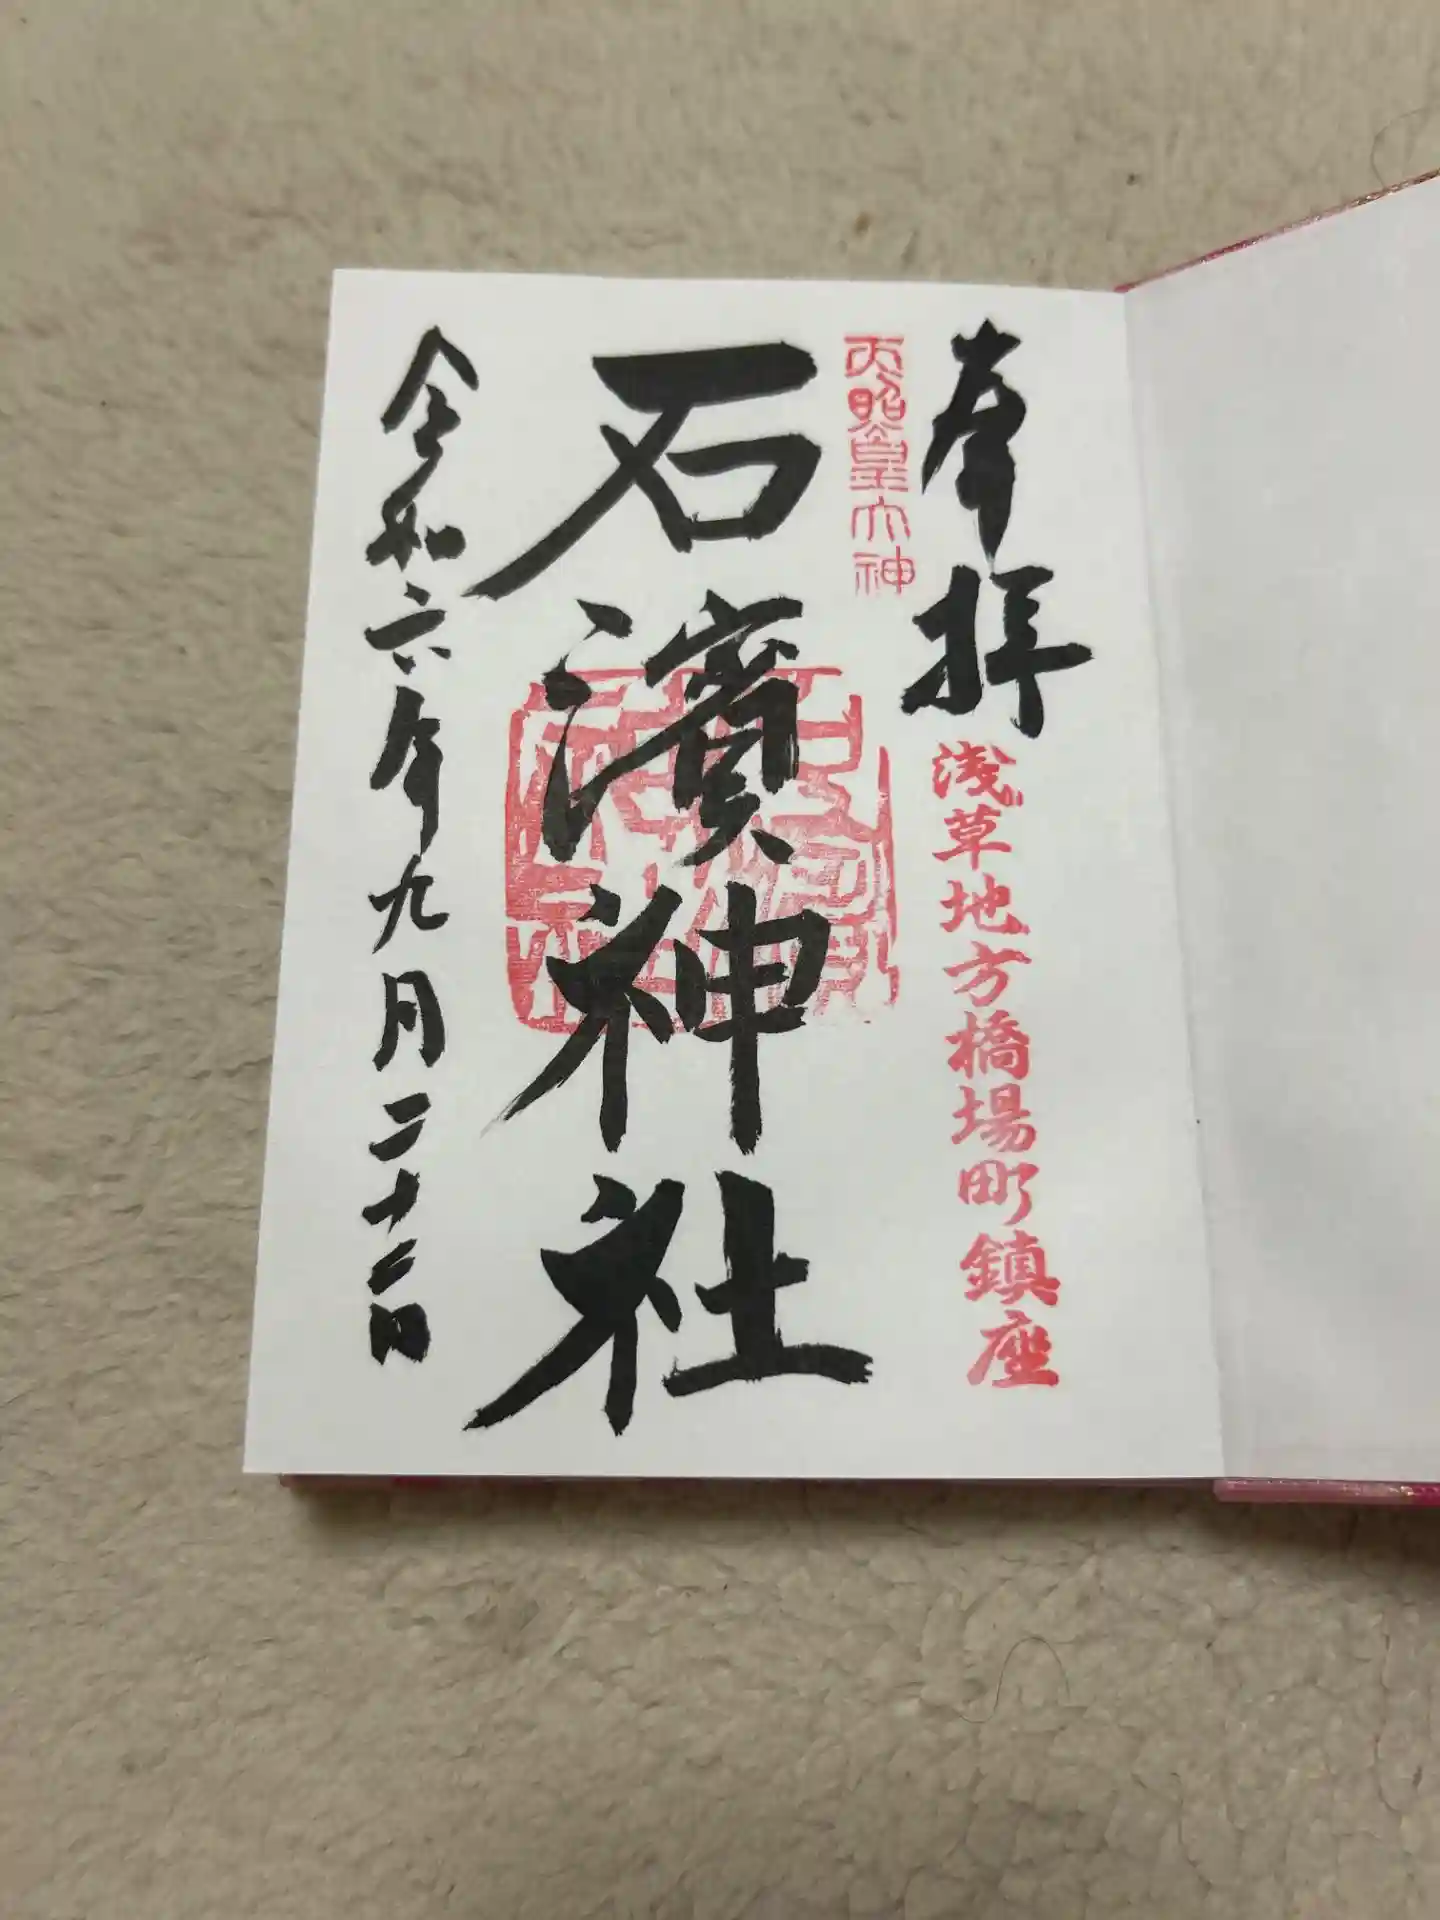 奉拝
浅草地方橋場町鎮座
天照皇大神
石濱神社
令和六年九月二十二日